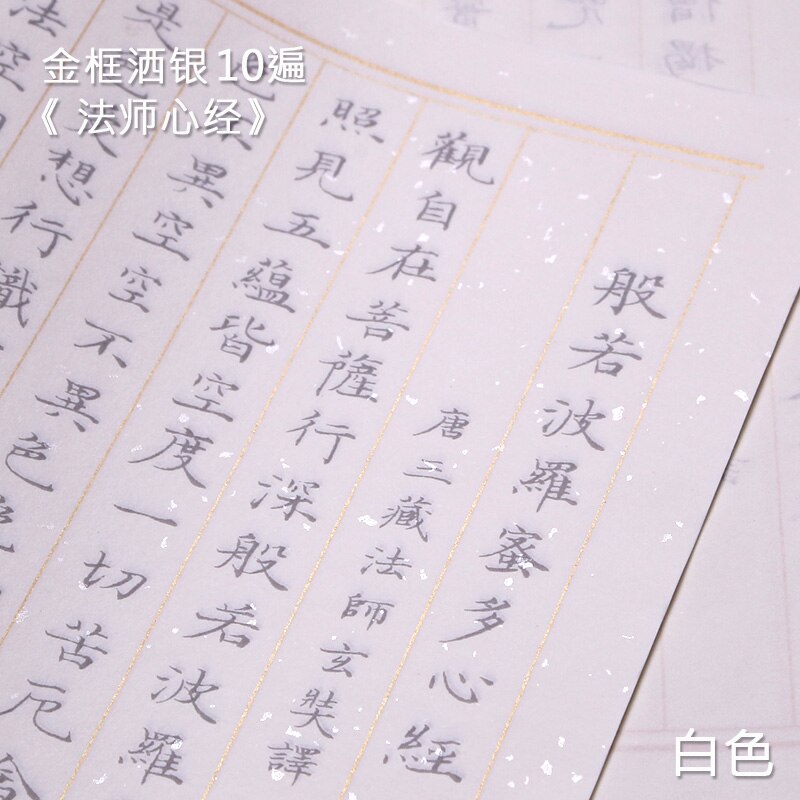 金框洒银10遍
《 法师心经》
般若波羅蜜多心經
唐三藏法師玄奘譯
觀自在菩薩行深般若波羅
照見五蘊皆空度一切苦厄
色不異空空不異色
是色受想行識
法空
白色